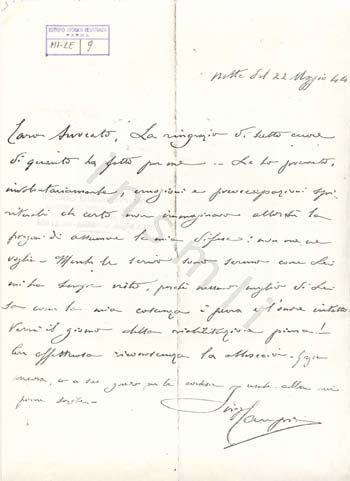 ISTITUTO STORICO RESISTENZA
PARMA
MI-LE 9
notte del 22 Maggio 44
Caro Avvocato, La ringrazio di tutto cuore
di quanto ha fatto per me .. Le ho procurato,
involontariamente, emozioni e preoccupazioni spi-
rituali che certo non immaginavo allorché la
pregai di assumere la mia difesa: non me ne
voglia - Mentre le scrivo sono sereno come Lei
mi ha sempre visto, perché nessuno meglio di Lei
sa come la mia coscienza è pura e l'onore intatto.
Verrà il giorno della riabilitazione piena!
Con affettuosa riconoscenza la abbraccio -
ancora, e a suo
forse
Luigi
insmli